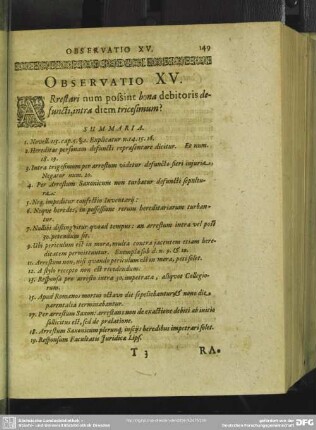 OBSERVATIO XV. 149
OBSERVATIO XV.
ARrestari num possint bona debitoris de-
functi, intra diem tricesimum?
SUMMARIA.
1. Novell. 115. cap. 5. §. 1. Explicatur n. 14. 15. 16.
2. Hereditas personam defuncti repraesentare dicitur. Et num.
18. 19.
3. Intra trigesimum per arrestum videtur defuncto fieri injuria.
Negatur num. 20.
4. Per Arrestum Saxonicum non turbatur defuncti sepultu-
ra.
5. Neq; impeditur confectio Inventarij:
6. Neque heredes, in possessione rerum hereditariarum turban-
tur.
7. Nullibi distinguitur quod tempus: an arrestum intra vel post
30. petendum sit.
9. Ubi periculum est in mora, multa contra jacturam etiam here-
ditatem permittuntur. Exempla sub d. n. 9. & 10.
11. Arrestum non, nisi quando periculum est in mora, peti solet.
12. A stylo recepto non est recedendum.
13. Responsa pro arresto intra 30. impetrato, aliquot Collegio-
rum.
15. Apud Romanos mortui octavo die sepeliebantur, & nono die
parentalia terminabantur.
17. Per arrestum Saxon: arrestans non de exactione debiti ab initio
sollicitus est, sed de praelatione.
18. Arrestum Saxonicum plerunq; inscijs heredibus impetrari solet.
19. Responsum Facultatis Juridicae Lips.
T 3 RA-